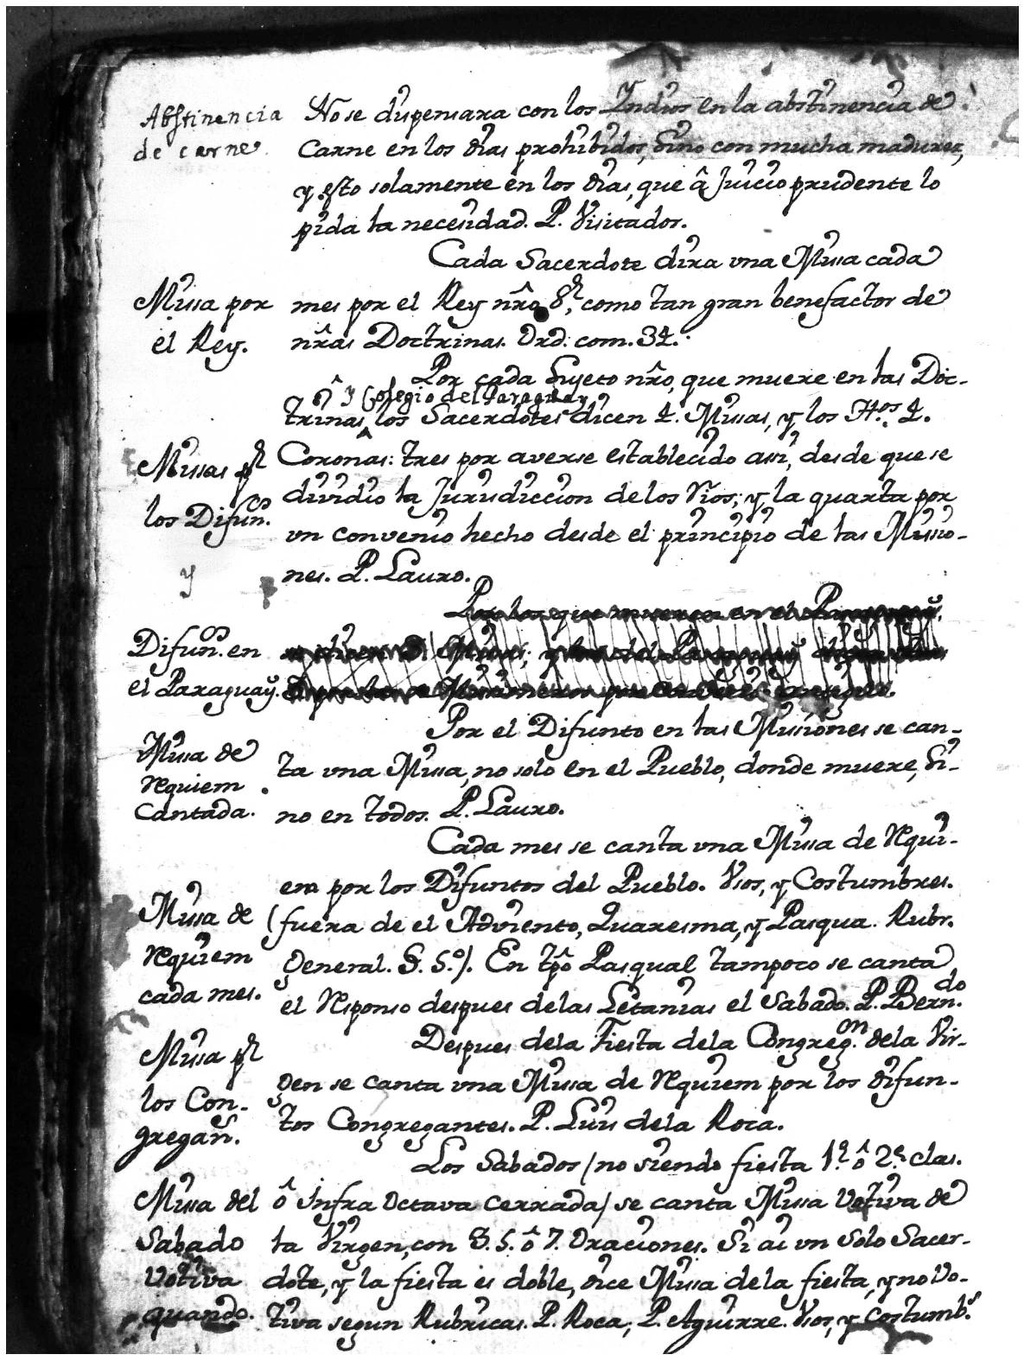 Abstinencia
de carne
No se dispensara con los Indios en la abstinencia de
Carne en los dias prohibidos, sino con mucha madurez,
y esto solamente en los dias, que â Juicio prudente lo
pida la necesidad. P. Visitador.
Cada Sacerdote dira vna Missa cada
Missa por
el Rey.
mes por el Rey nr̂o Sr̃, como tan gran benefactor de
nr̂as Doctrinas. Ord. com. 34.
Por cada Sujeto nr̂o, que muere en las Doc-
ô y Colegio del Paraguay
trinas, los Sacerdotes dicen 4. Missas, y los Hos. 4.
Missas pr
los Difunos.
y
Coronas: tres por averse establecido assi, desde que se
dividio la Jurisdiccion de los Rios; y la quarta por
vn convenio hecho desde el principio de las Missio-
nes. P. Lauro.
Difunos. en
el Paraguay.
Missa de
Requiem
Cantada.
Por el Difunto en las Missiones se can-
ta vna Missa, no solo en el Pueblo, donde muere, Si-
no en todos. P. Lauro.
Cada mes se canta vna Missa de Requi-
em por los Difuntos del Pueblo. Vsos, y Costumbres.
Missa de
Requiem
cada mes.
(fuera de el Adviento, Quaresma, y Pasqua. Rubr.
General. §. 5.º). En tp̂o Pasqual tampoco se canta
el Responso despues de las Letanias el Sabado. P. Berndo.
Missa pr
los Con-
gregan.
Despues dela Fiesta dela Congregon. dela Vir-
gen se canta vna Missa de Requiem por los difun-
tos Congregantes. P. Luis dela Roca.
Los Sabados (no siendo fiesta 1ª. ô 2ª. clas.
Missa del
Sabado
Votiva
quando.
ô infra Octava cerrada) se canta Missa Votiva de
la Virgen, con 3. 5. ô 7. Oraciones. Si ai vn Solo Sacer-
dote, y la fiesta es doble, dice Missa dela fiesta, y no Vo-
tiva segun Rubricas. P. Roca, P. Aguirre. Vsos, y Costumbs.